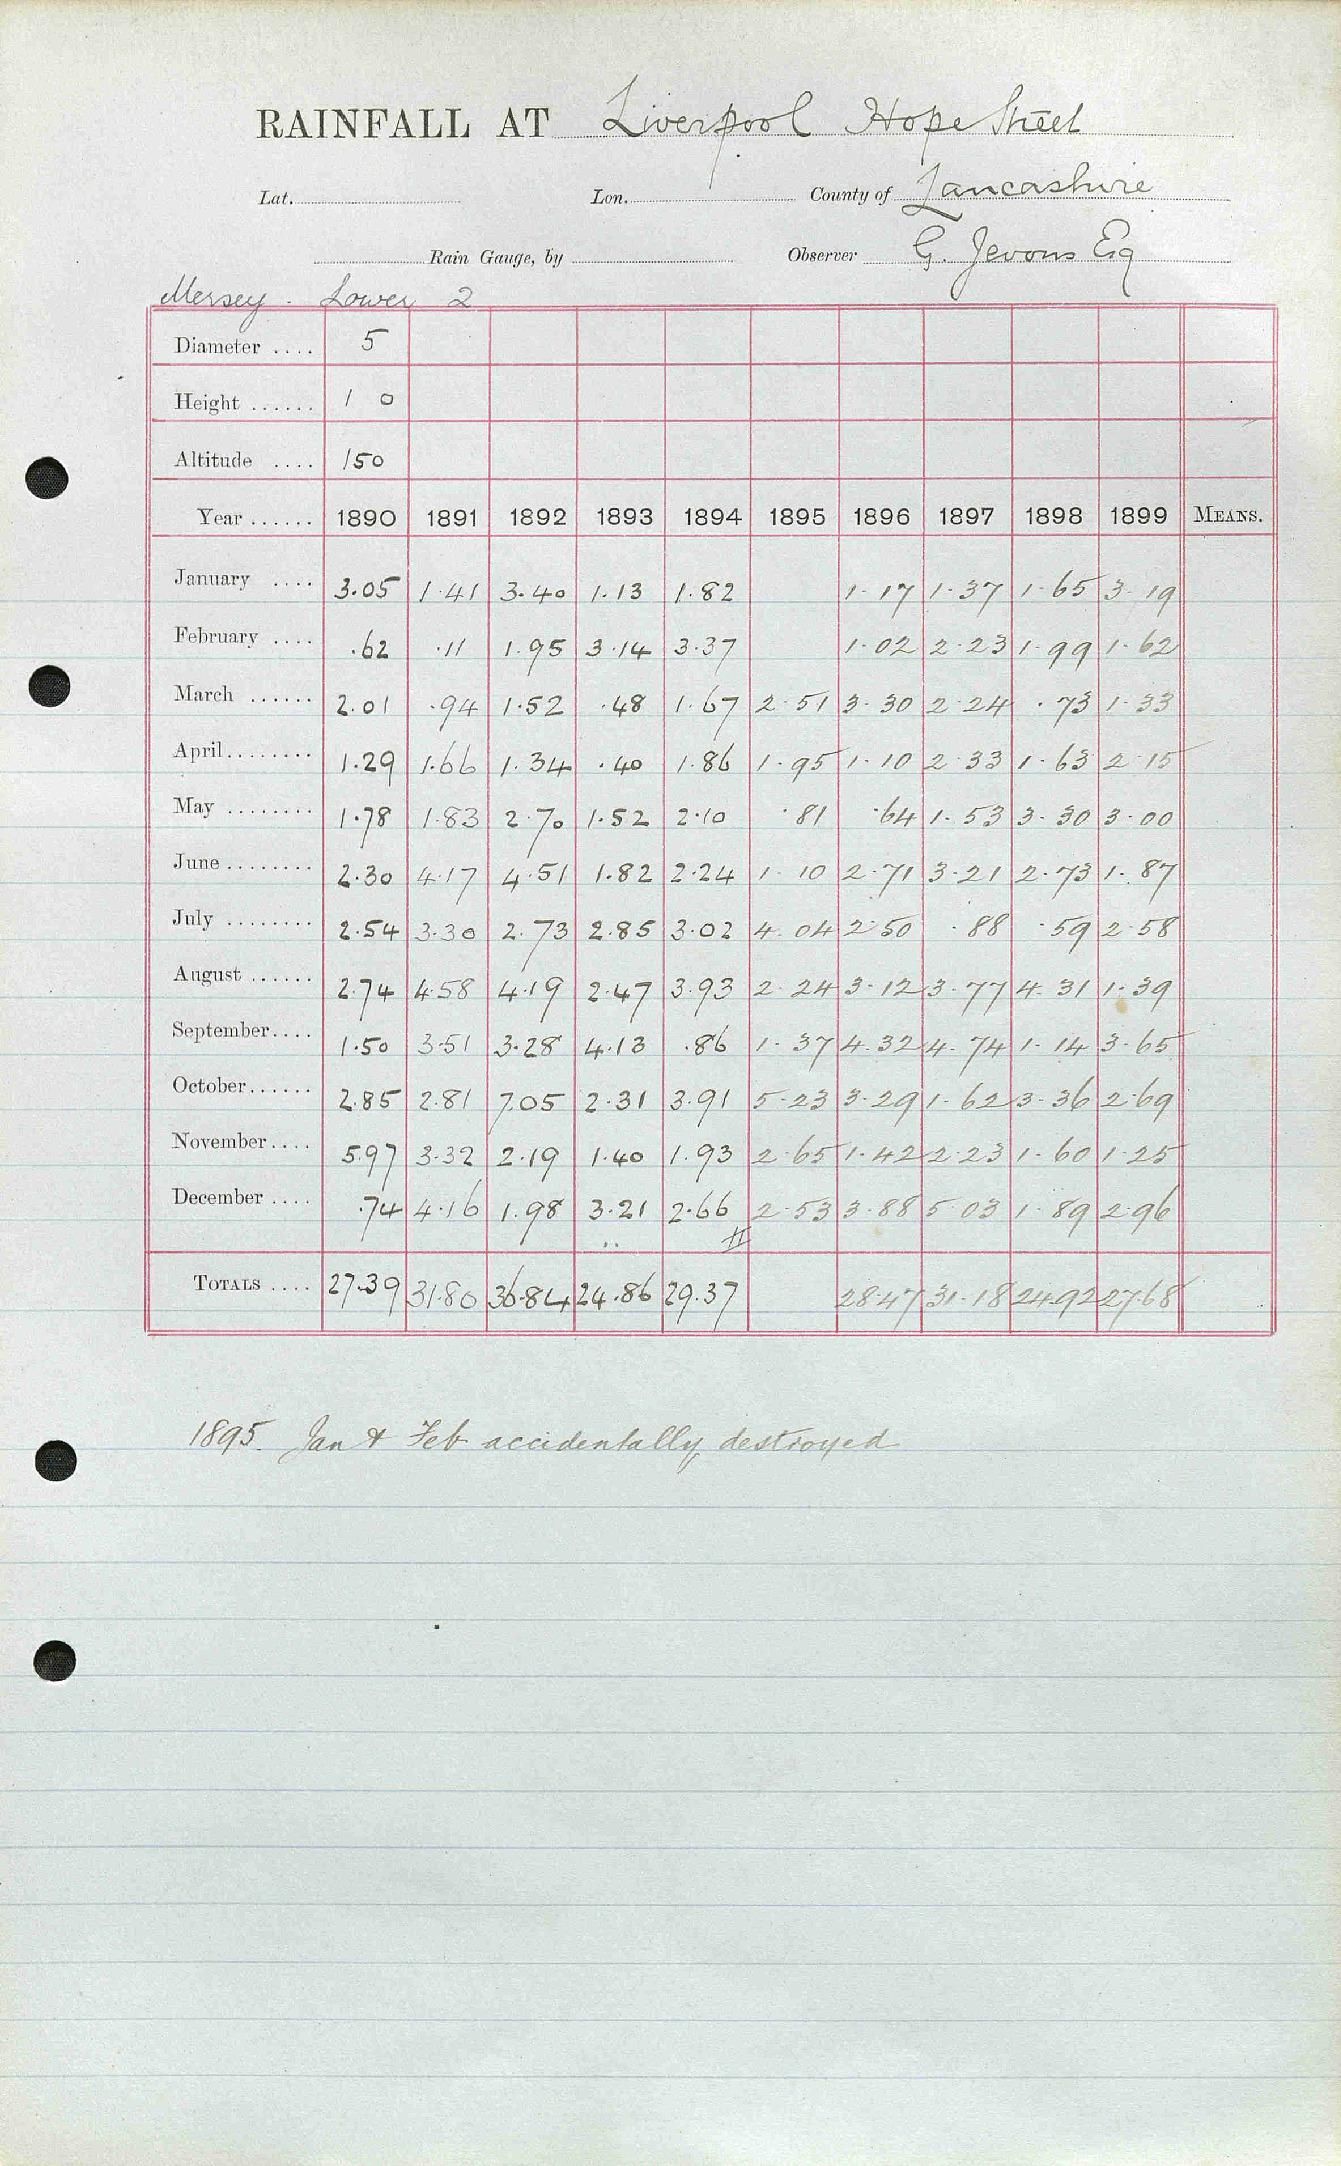 RAINFALL AT Liverpool Hope Street
Lat. Lon. County of Lancashire
Rain Gauge, by Observer G. Jevons Esq
Mersey . Lower 2
Diameter .... 5
Height ...... 1 0
Altitude .... 150
Year ...... 1890 1891 1892 1893 1894 1895 1896 1897 1898 1899 MEANS.
January .... 3.05 1.41 3.40 1.13 1.82 1.17 1.37 1.65 3.19
February .... .62 .11 1.95 3.14 3.37 1.02 2.23 1.99 1.62
March ...... 2.01 .94 1.52 .48 1.67 2.51 3.30 2.24 .73 1.33
April........ 1.29 1.66 1.34 .40 1.86 1.95 1.10 2.33 1.63 2.15
May ........ 1.78 1.83 2.70 1.52 2.10 .81 .64 1.53 3.30 3.00
June........ 2.30 4.17 4.51 1.82 2.24 1.10 2.71 3.21 2.73 1.87
July ........ 2.54 3.30 2.73 2.85 3.02 4.04 2.50 .88 .59 2.58
August ...... 2.74 4.58 4.19 2.47 3.93 2.24 3.12 3.77 4.31 1.39
September.... 1.50 3.51 3.28 4.13 .86 1.37 4.32 4.74 1.14 3.65
October...... 2.85 2.81 7.05 2.31 3.91 5.23 3.29 1.62 3.36 2.69
November.... 5.97 3.32 2.19 1.40 1.93 2.65 1.42 2.23 1.60 1.25
December .... .74 4.16 1.98 3.21 2.66 2.53 3.88 5.03 1.89 2.96
TOTALS .... 27.39 31.80 36.84 24.86 29.37 28.47 31.18 24.92 27.68
1895. Jan & Feb accidentally destroyed